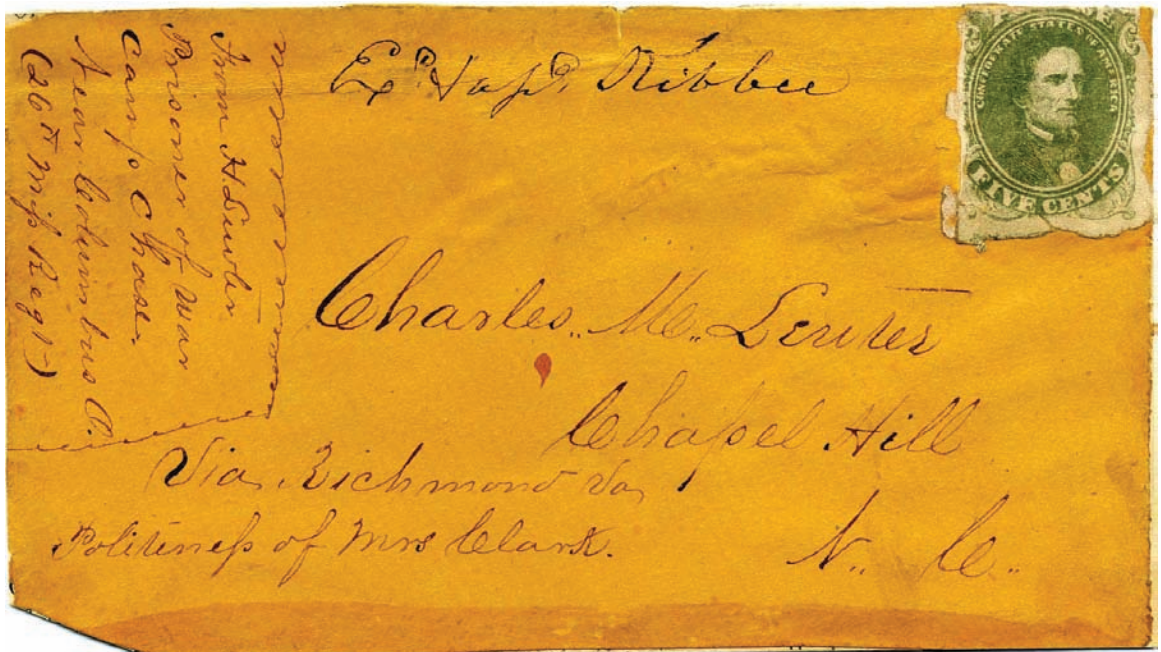 Exd
from H. Lawler
Prisoner of War
Camp Chase
Near Columbus O.
(26th Miſs Regt)
CONFEDERATE STATES OF AMERICA
FIVE CENTS
Charles.. M.. Lenter
Chapel Hill
N.. C..
Via Richmond Va
Politeneſs of Mrs Clark.